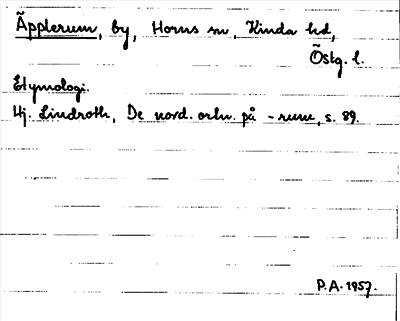 Äpplerum, by, Horns sn, Kinda hd,
Östg. l.
Etymologi.
Hj. Lindroth, De nord. ortn. på -rum, s. 89.
P.A. 1957.